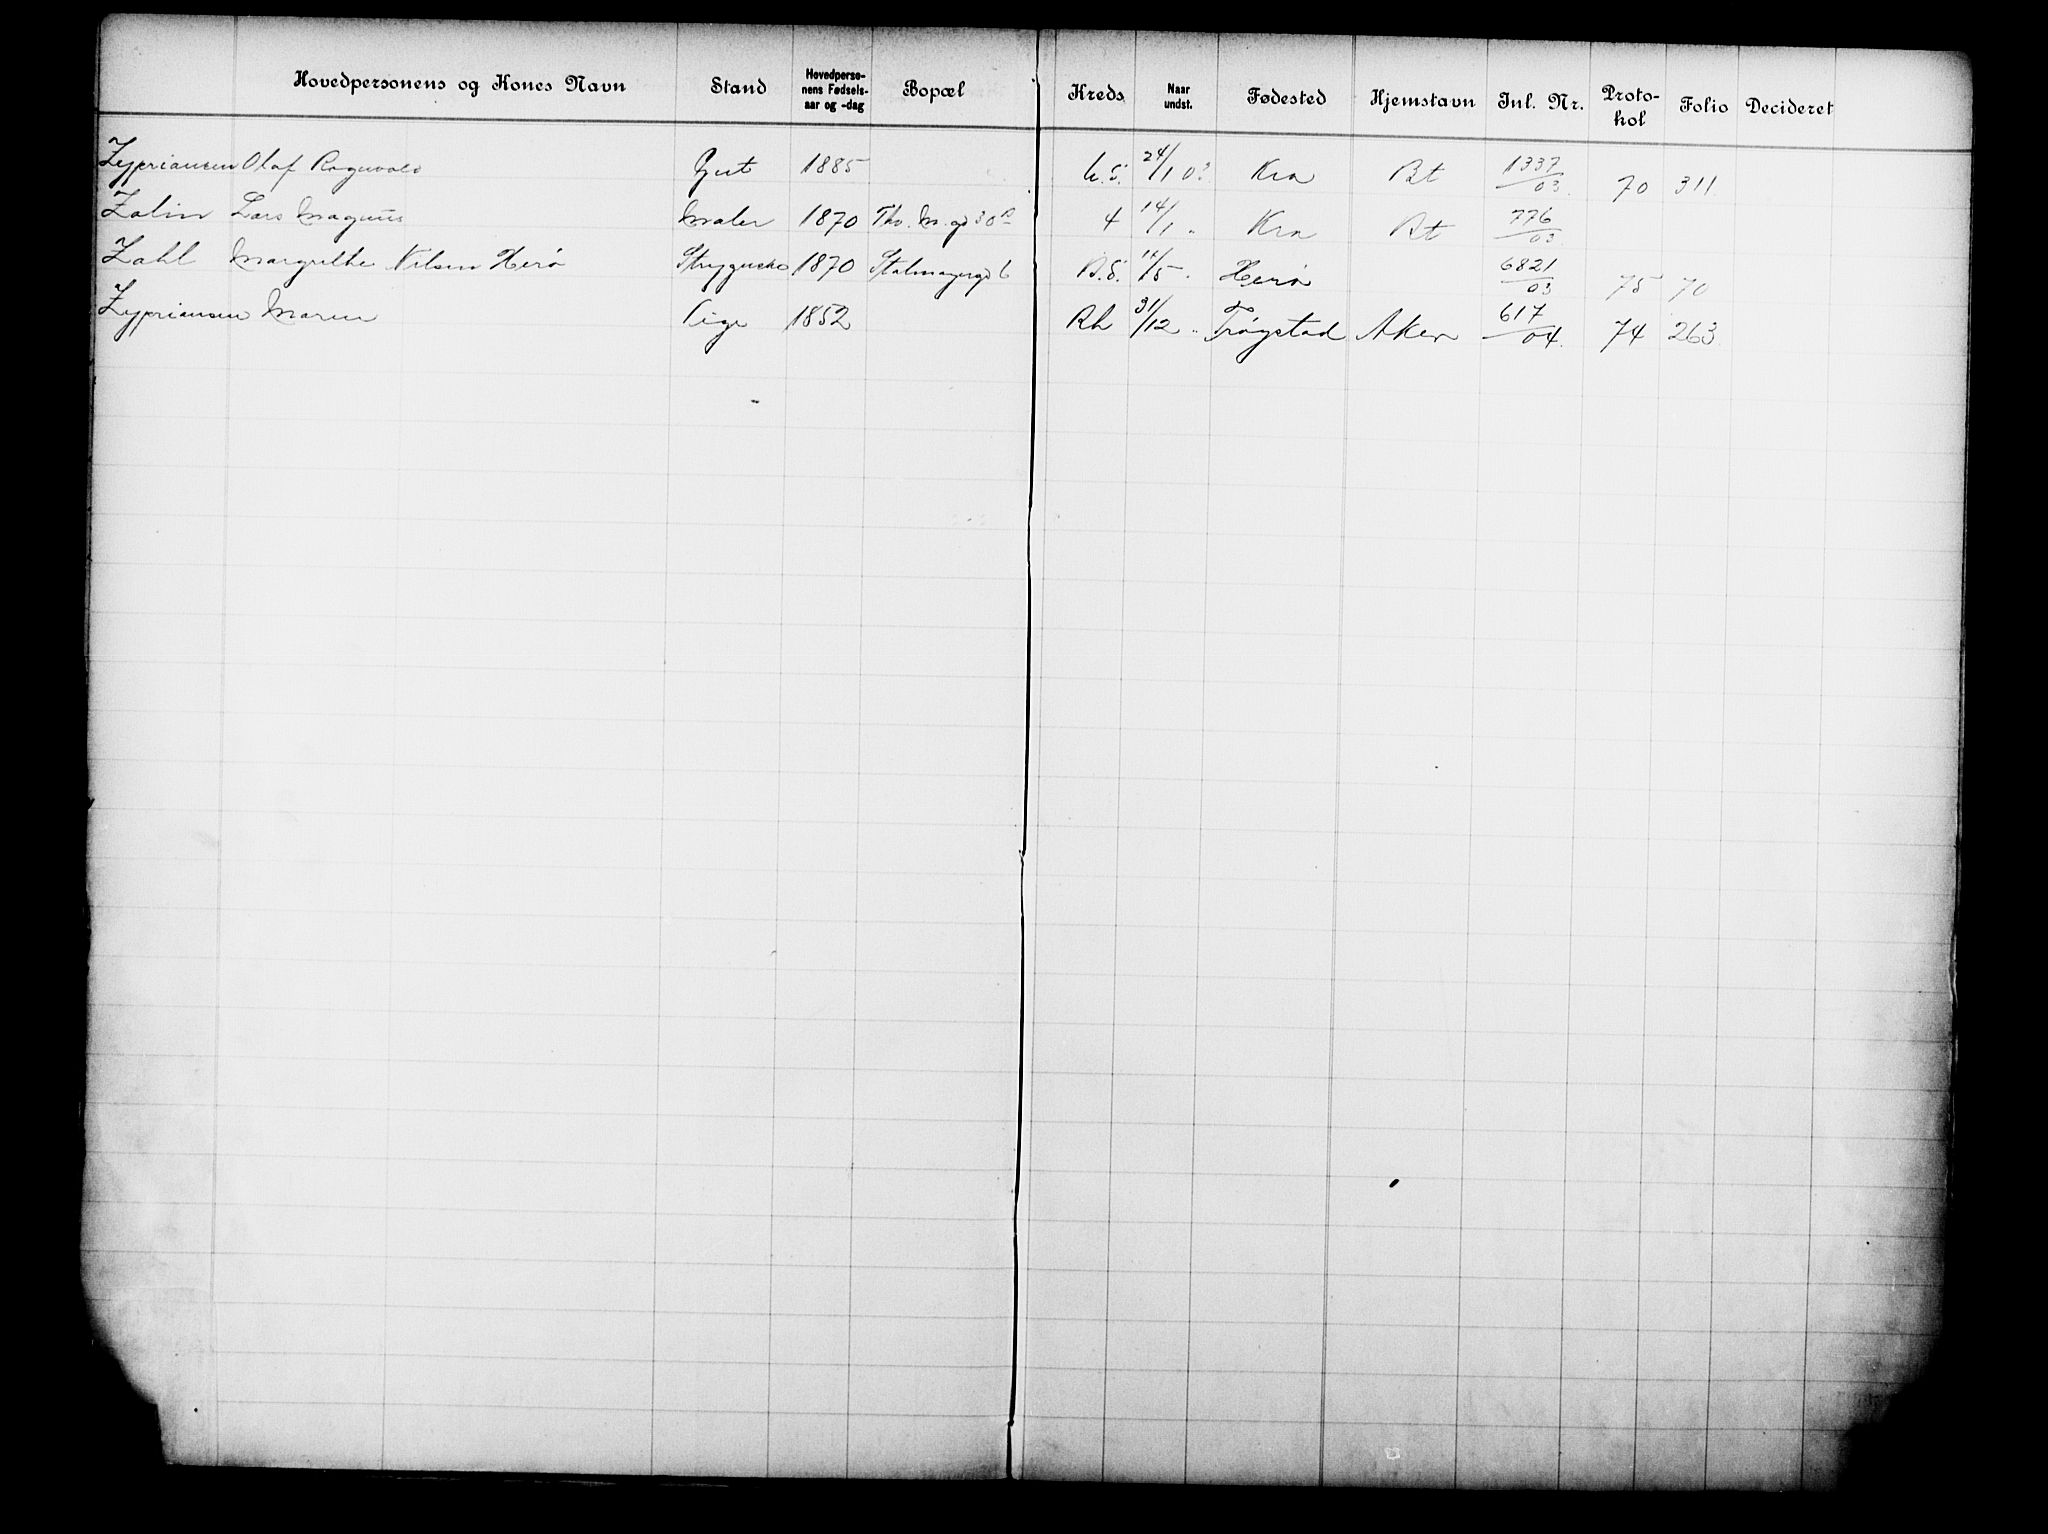 Hovedpersonens og Kones Navn Stand Hovedpersonens Fødselsaar og -dag Bopæl Kreds Naar undst. Fødested Hjemstavn Inl. Nr. Protokol Folio Decideret
Zypriansen Olaf Ragnvald Gut 1885 24/1 03 Kra Bt 1337/03 70 311
Zalin Lars Magnus Maler 1870 Tho. M. gd 30 B 4 14/1 " Kra Bt 776/03
Zahl Margrethe Nilsen Herø 1870 6 B.S. 14/5 " Herø 6821/03 75 70
Zypriansen Maren Pige 1852 Rh 31/12 " Trøgstad Aker 617/04 74 263